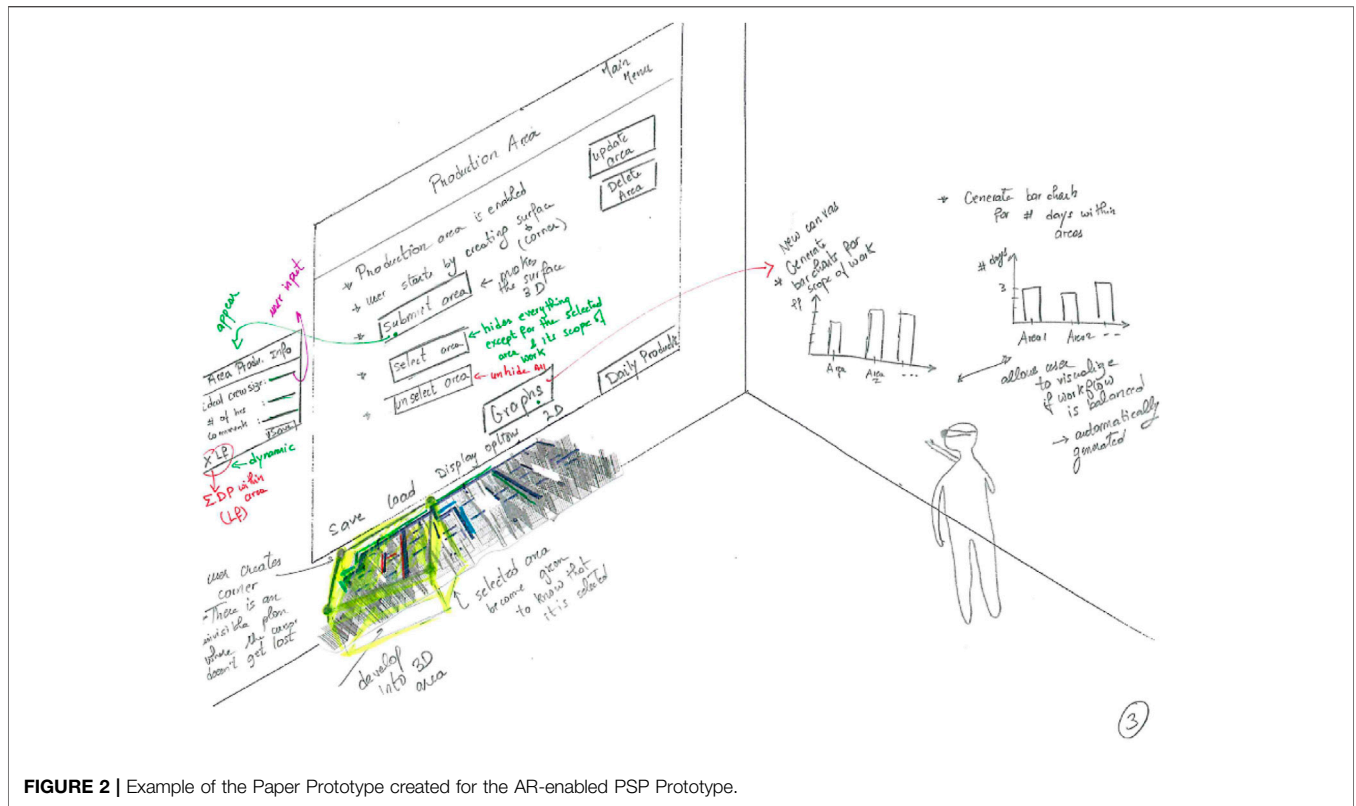 Main
Menu
Production Area
update
area
Delete
Area
* Production area is enabled
→ user starts by creating surface
(corner)
* Submit area
← makes
the surface
3D
→ select area
← hides everything
except for the selected
area & its scope of
work
* unselect area
← unhide All
Graphs
Daily Producti
Save Load Display options 2D
appear
user input
Area Produ. Info
ideal crew size:
# of hrs :
comments :
Save
X Lf
← dynamic
Σ DP within
area
(Lf)
user creates
corner
- There is an
invisible plan
where the
doesn't get lost
selected area
become green
to know that
it is selected
develop
into 3D
area
New canvas
* Generate
bar charts for
scope of work
Area
Area
2
---
* Generate bar charts
for # days within
areas
# days
3
Area 1 Area 2 ---
allows user
to visualize
if workflow
is balanced
→ automatically
generated
3
FIGURE 2 | Example of the Paper Prototype created for the AR-enabled PSP Prototype.